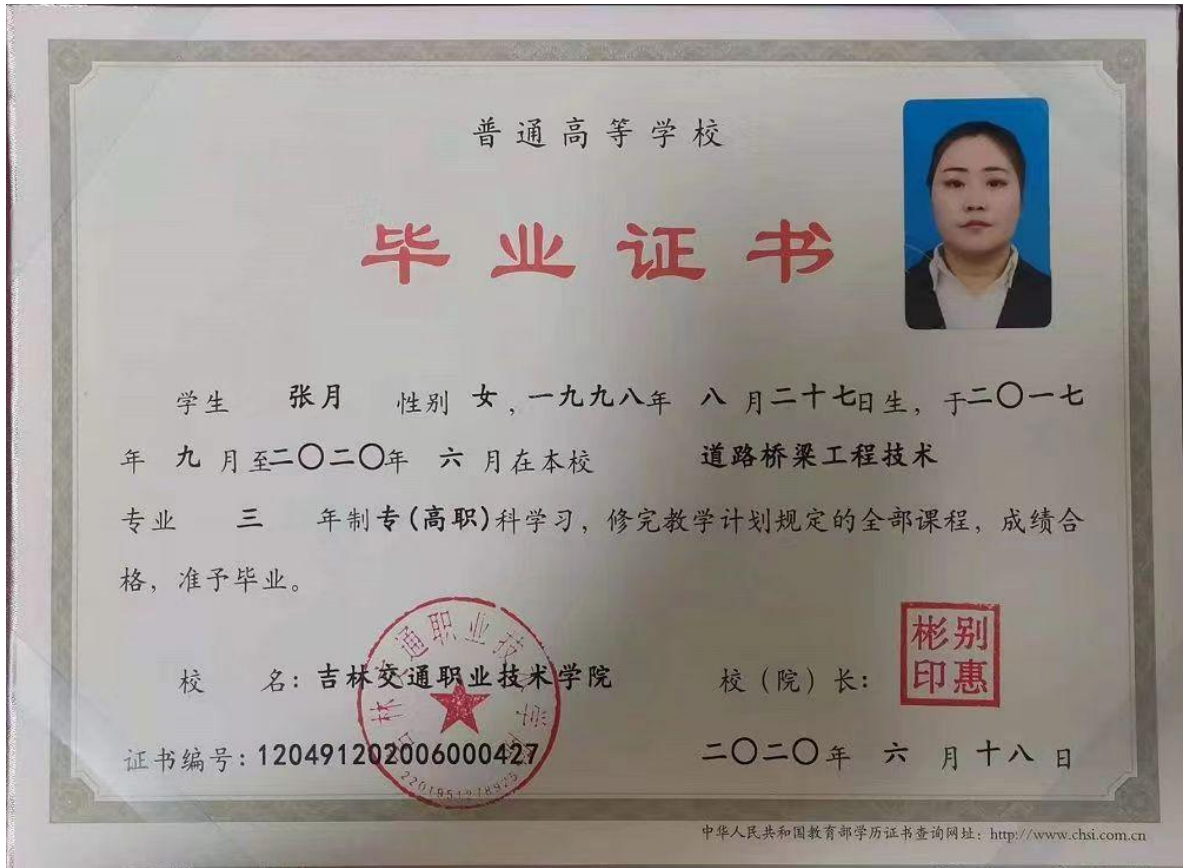 普通高等学校
毕业证书
学生 张月 性别 女，一九九八年 八 月二十七日生，于二〇一七
年 九 月至二〇二〇年 六 月在本校 道路桥梁工程技术
专业 三 年制专(高职)科学习，修完教学计划规定的全部课程，成绩合
格，准予毕业。
校 名：吉林交通职业技术学院 校（院）长：
彬别
印惠
吉林交通职业技术学院
证书编号：120491202006000427 二〇二〇年 六 月十八日
中华人民共和国教育部学历证书查询网址：http://www.chsi.com.cn